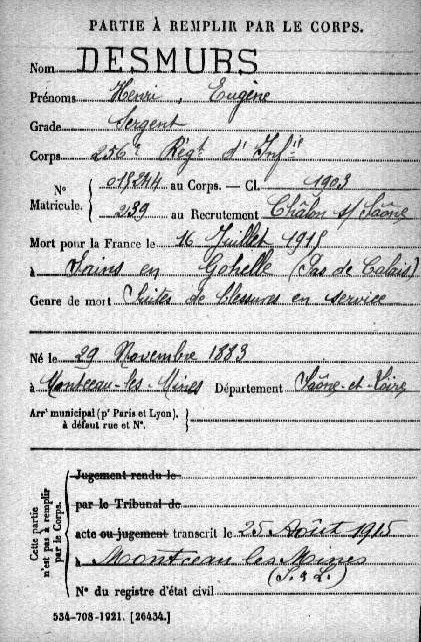 PARTIE À REMPLIR PAR LE CORPS.
Nom DESMURS
Prénoms Henri, Eugène
Grade Sergent
Corps 256e Régt d'Infie
N° Matricule. { 015244 au Corps. — Cl. 1903
239 au Recrutement Châlon s/ Saône
Mort pour la France le 16 Juillet 1915
à Sains en Gohelle (Pas de Calais)
Genre de mort Suites de blessures en service
Né le 29 Novembre 1883
à Montceau-les-Mines Département Saône-et-Loire
Arrt municipal (pr Paris et Lyon), à défaut rue et N°. }
Cette partie n'est pas à remplir par le Corps.
Jugement rendu le
par le Tribunal de
acte ou jugement transcrit le 25 Août 1915
à Montceau les Mines
(S. & L.)
N° du registre d'état civil
534-708-1921. [26434.]